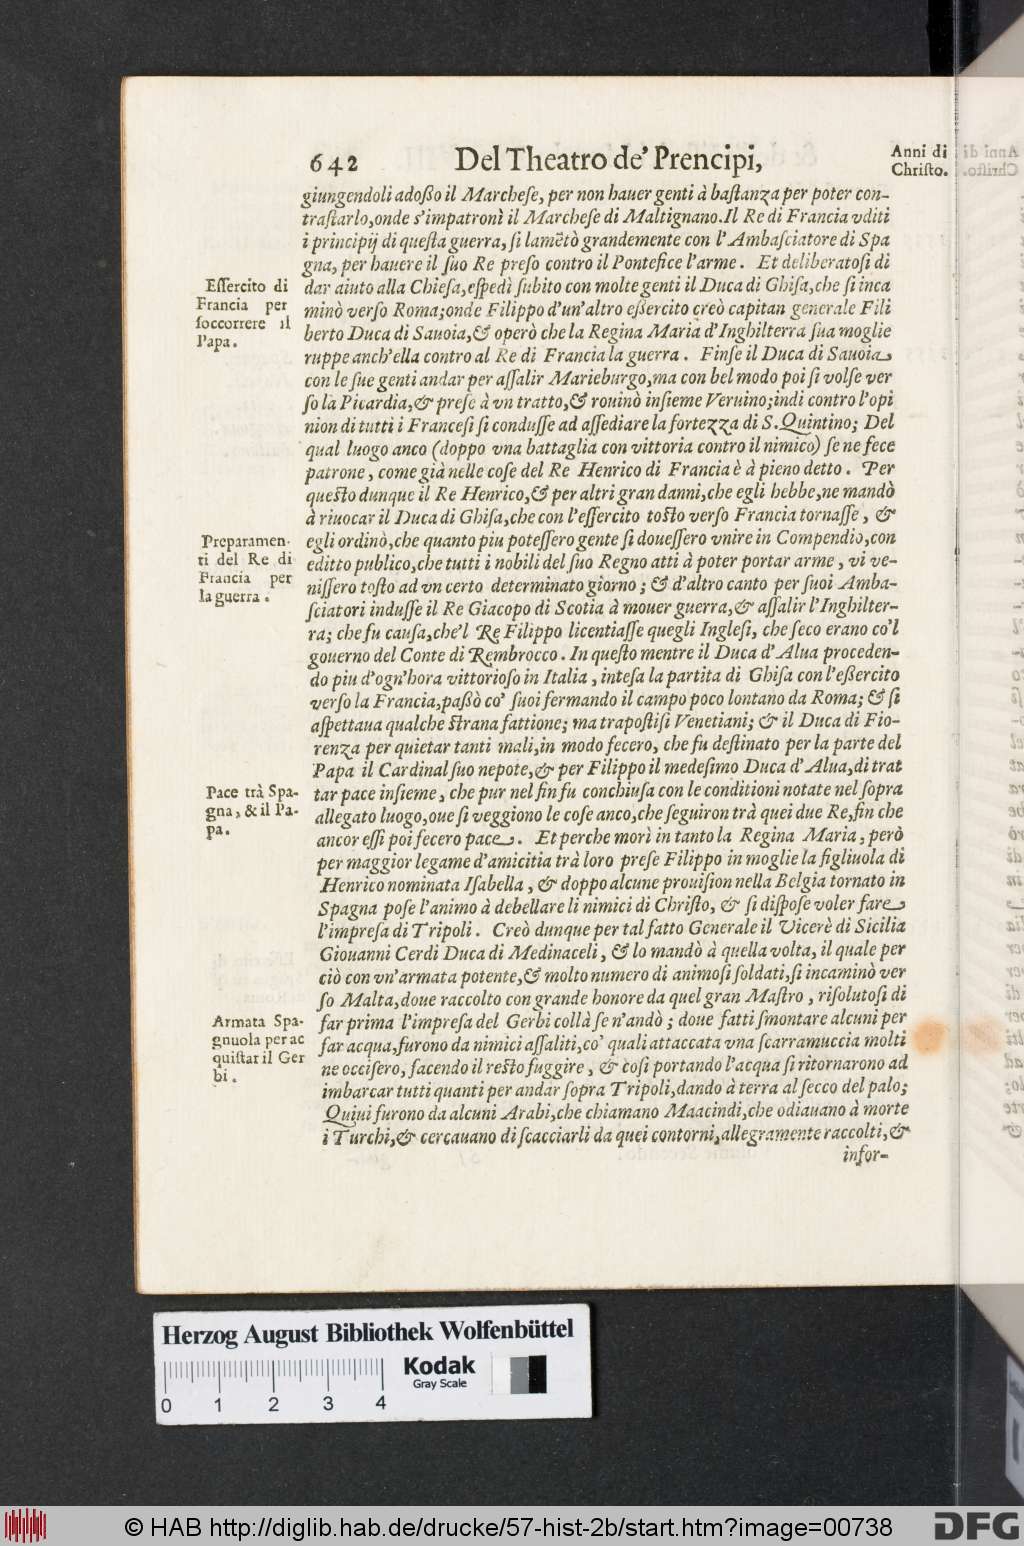 642 Del Theatro de' Prencipi, Anni di Christo.
giungendoli adoßo il Marchese, per non hauer genti à bastanza per poter con-
trastarlo, onde s'impatronì il Marchese di Maltignano. Il Re di Francia vditi
i principij di questa guerra, si lamētò grandemente con l'Ambasciatore di Spa
gna, per hauere il suo Re preso contro il Pontefice l'arme. Et deliberatosi di
dar aiuto alla Chiesa, espedì subito con molte genti il Duca di Ghisa, che si inca
minò verso Roma; onde Filippo d'un'altro eßercito creò capitan generale Fili
berto Duca di Sauoia, & operò che la Regina Maria d'Inghilterra sua moglie
ruppe anch'ella contro al Re di Francia la guerra. Finse il Duca di Sauoia
con le sue genti andar per assalir Marieburgo, ma con bel modo poi si volse ver
so la Picardia, & prese à vn tratto, & rouinò insieme Veruino; indi contro l'opi
nion di tutti i Francesi si condusse ad assediare la fortezza di S. Quintino; Del
qual luogo anco (doppo vna battaglia con vittoria contro il nimico) se ne fece
patrone, come già nelle cose del Re Henrico di Francia è à pieno detto. Per
questo dunque il Re Henrico, & per altri gran danni, che egli hebbe, ne mandò
à riuocar il Duca di Ghisa, che con l'essercito tosto verso Francia tornasse, &
egli ordinò, che quanto piu potessero gente si douessero vnire in Compendio, con
editto publico, che tutti i nobili del suo Regno atti à poter portar arme, vi ve-
nissero tosto ad vn certo determinato giorno; & d'altro canto per suoi Amba-
sciatori indusse il Re Giacopo di Scotia à mouer guerra, & assalir l'Inghilter-
ra; che fu causa, che'l Re Filippo licentiasse quegli Inglesi, che seco erano co'l
gouerno del Conte di Rembrocco. In questo mentre il Duca d'Alua proceden-
do piu d'ogn'hora vittorioso in Italia, intesa la partita di Ghisa con l'eßercito
verso la Francia, paßò co' suoi fermando il campo poco lontano da Roma; & si
aspettaua qualche strana fattione; ma trapostisi Venetiani; & il Duca di Fio-
renza per quietar tanti mali, in modo fecero, che fu destinato per la parte del
Papa il Cardinal suo nepote, & per Filippo il medesimo Duca d'Alua, di trat
tar pace insieme, che pur nel fin fu conchiusa con le conditioni notate nel sopra
allegato luogo, oue si veggiono le cose anco, che seguiron trà quei due Re, fin che
ancor essi poi fecero pace. Et perche morì in tanto la Regina Maria, però
per maggior legame d'amicitia trà loro prese Filippo in moglie la figliuola di
Henrico nominata Isabella, & doppo alcune prouision nella Belgia tornato in
Spagna pose l'animo à debellare li nimici di Christo, & si dispose voler fare
l'impresa di Tripoli. Creò dunque per tal fatto Generale il Vicerè di Sicilia
Giouanni Cerdi Duca di Medinaceli, & lo mandò à quella volta, il quale per
ciò con vn'armata potente, & molto numero di animosi soldati, si incaminò ver
so Malta, doue raccolto con grande honore da quel gran Mastro, risolutosi di
far prima l'impresa del Gerbi collà se n'andò; doue fatti smontare alcuni per
far acqua, furono da nimici assaliti, co' quali attaccata vna scarramuccia molti
ne occisero, facendo il resto fuggire, & così portando l'acqua si ritornarono ad
imbarcar tutti quanti per andar sopra Tripoli, dando à terra al secco del palo;
Quiui furono da alcuni Arabi, che chiamano Maacindi, che odiauano à morte
i Turchi, & cercauano di scacciarli da quei contorni, allegramente raccolti, &
infor-
Essercito di
Francia per
soccorrere il
Papa.
Preparamen-
ti del Re di
Francia per
la guerra.
Pace trà Spa-
gna, & il Pa-
pa.
Armata Spa-
gnuola per ac
quistar il Ger
bi.
Herzog August Bibliothek Wolfenbüttel
Kodak
Gray Scale
0 1 2 3 4
© HAB http://diglib.hab.de/drucke/57-hist-2b/start.htm?image=00738
DFG